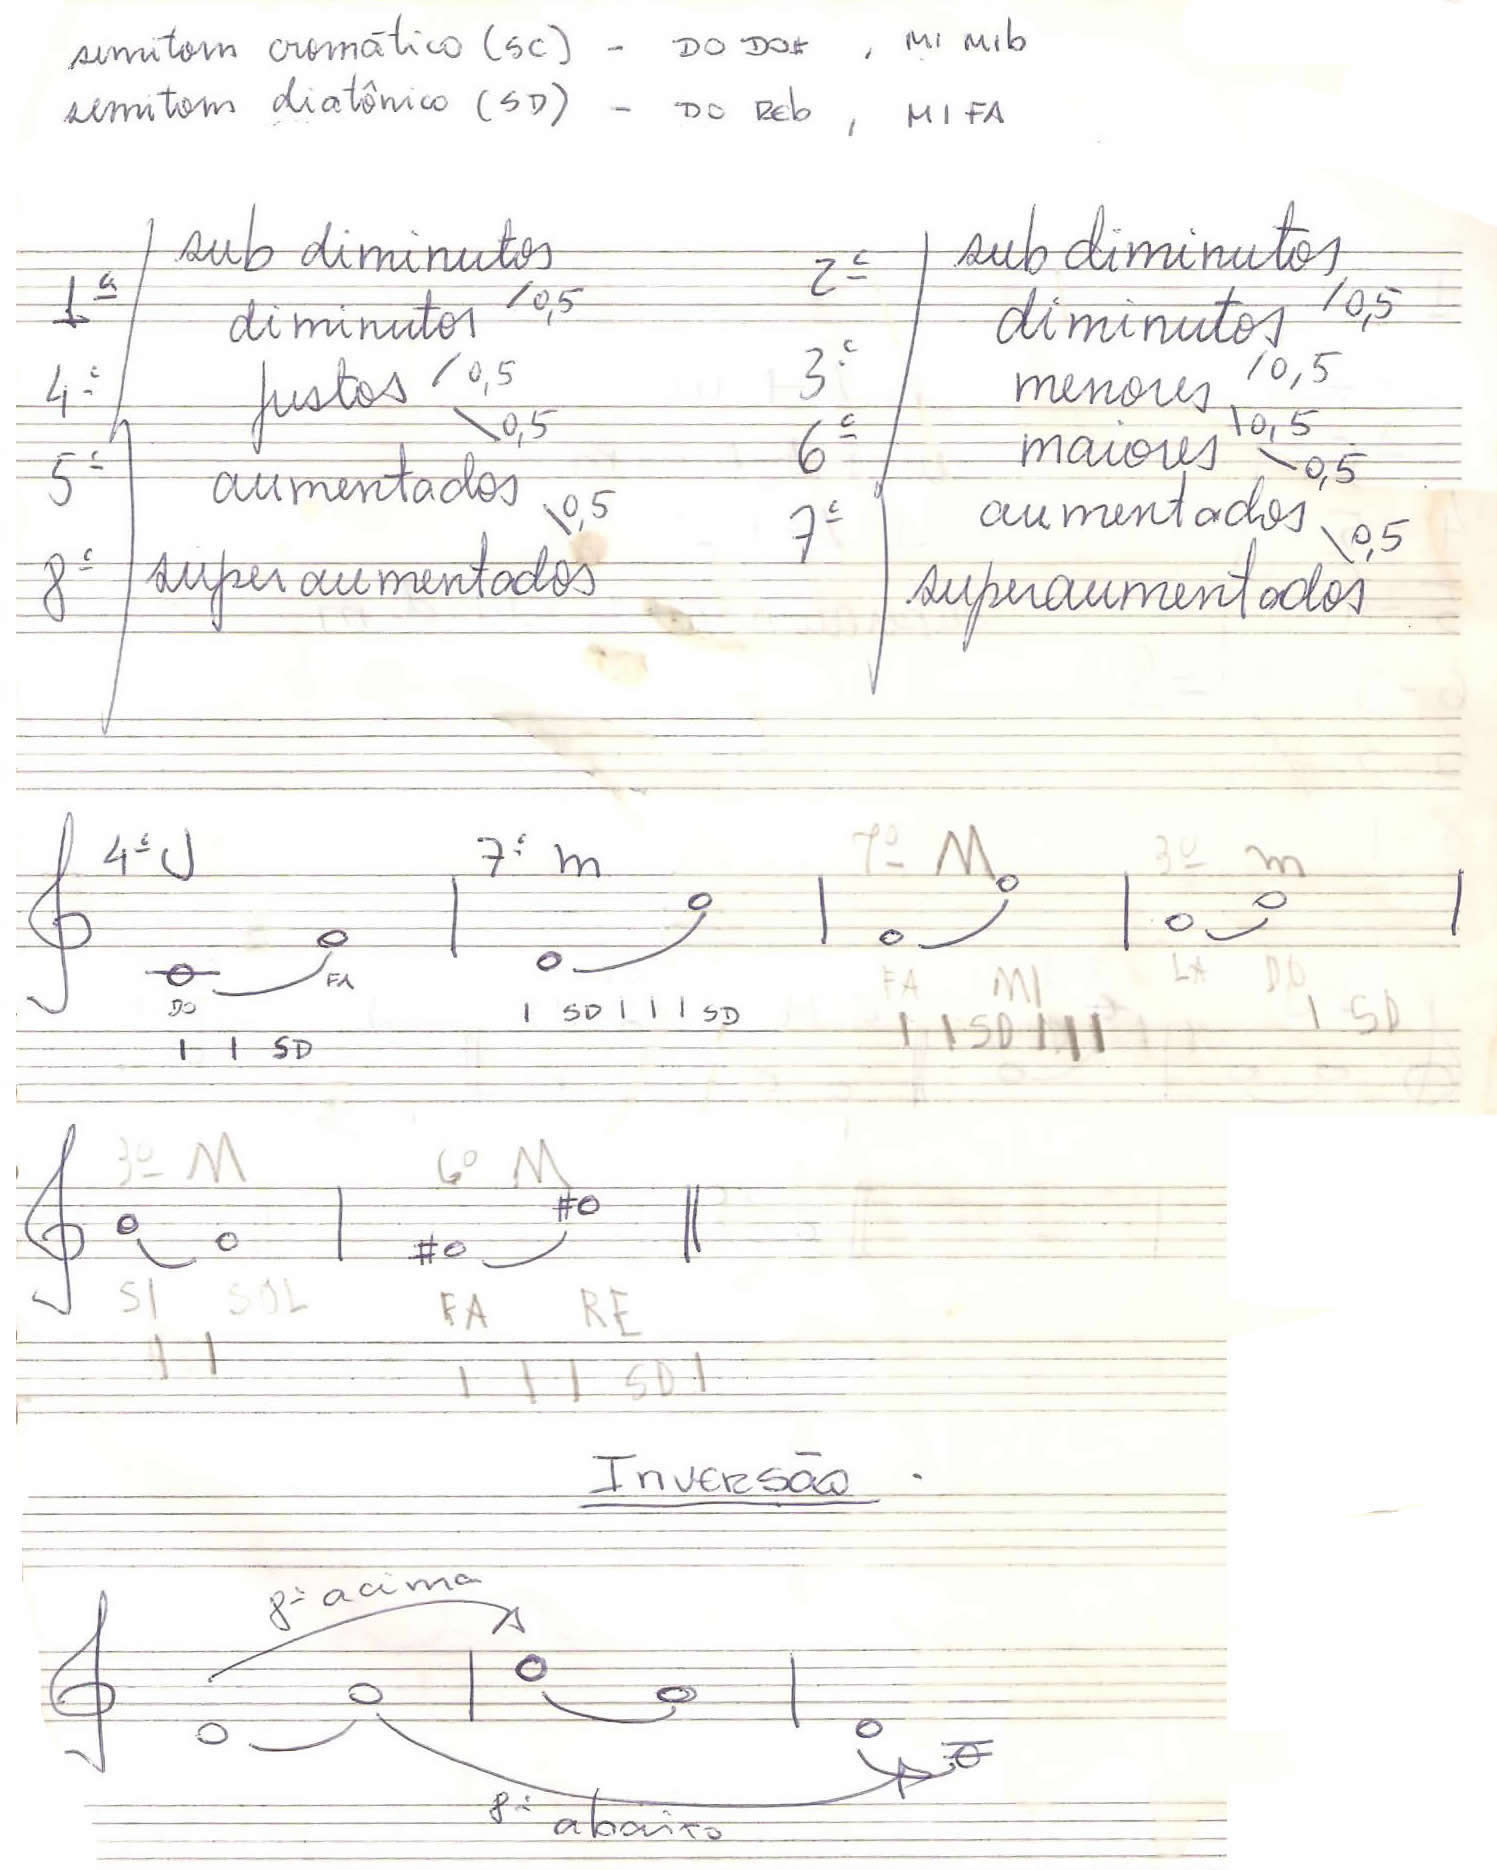 semitom cromático (SC) - DO DO# , MI MIb
semitom diatônico (SD) - DO REb , MI FA
sub diminutos
1ª diminutos /0,5
4ª justos /0,5
\0,5
5ª aumentados \0,5
8ª superaumentados
2ª sub diminutos
diminutos /0,5
3ª menores /0,5
6ª maiores \0,5
\0,5
7ª aumentados \0,5
superaumentados
4ª J 7ª m 7ª M 3ª m
DO FA FA MI LA DO
| | SD | SD | | | SD | | SD | | | | SD
3ª M 6ª M
# #
SI SOL FA RE
| | | | | SD |
INVERSÃO
8ª acima
8ª abaixo